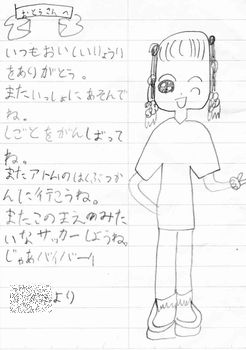 おとうさんへ
いつもおいしいりょうり
をありがとう。
またいっしょにあそんで
ね。
しごとをがんばって
ね。
またアトムのはくぶつか
んに行こうね。
またこのまえのみた
いなサッカーしようね。
じゃあバイバーイ
より